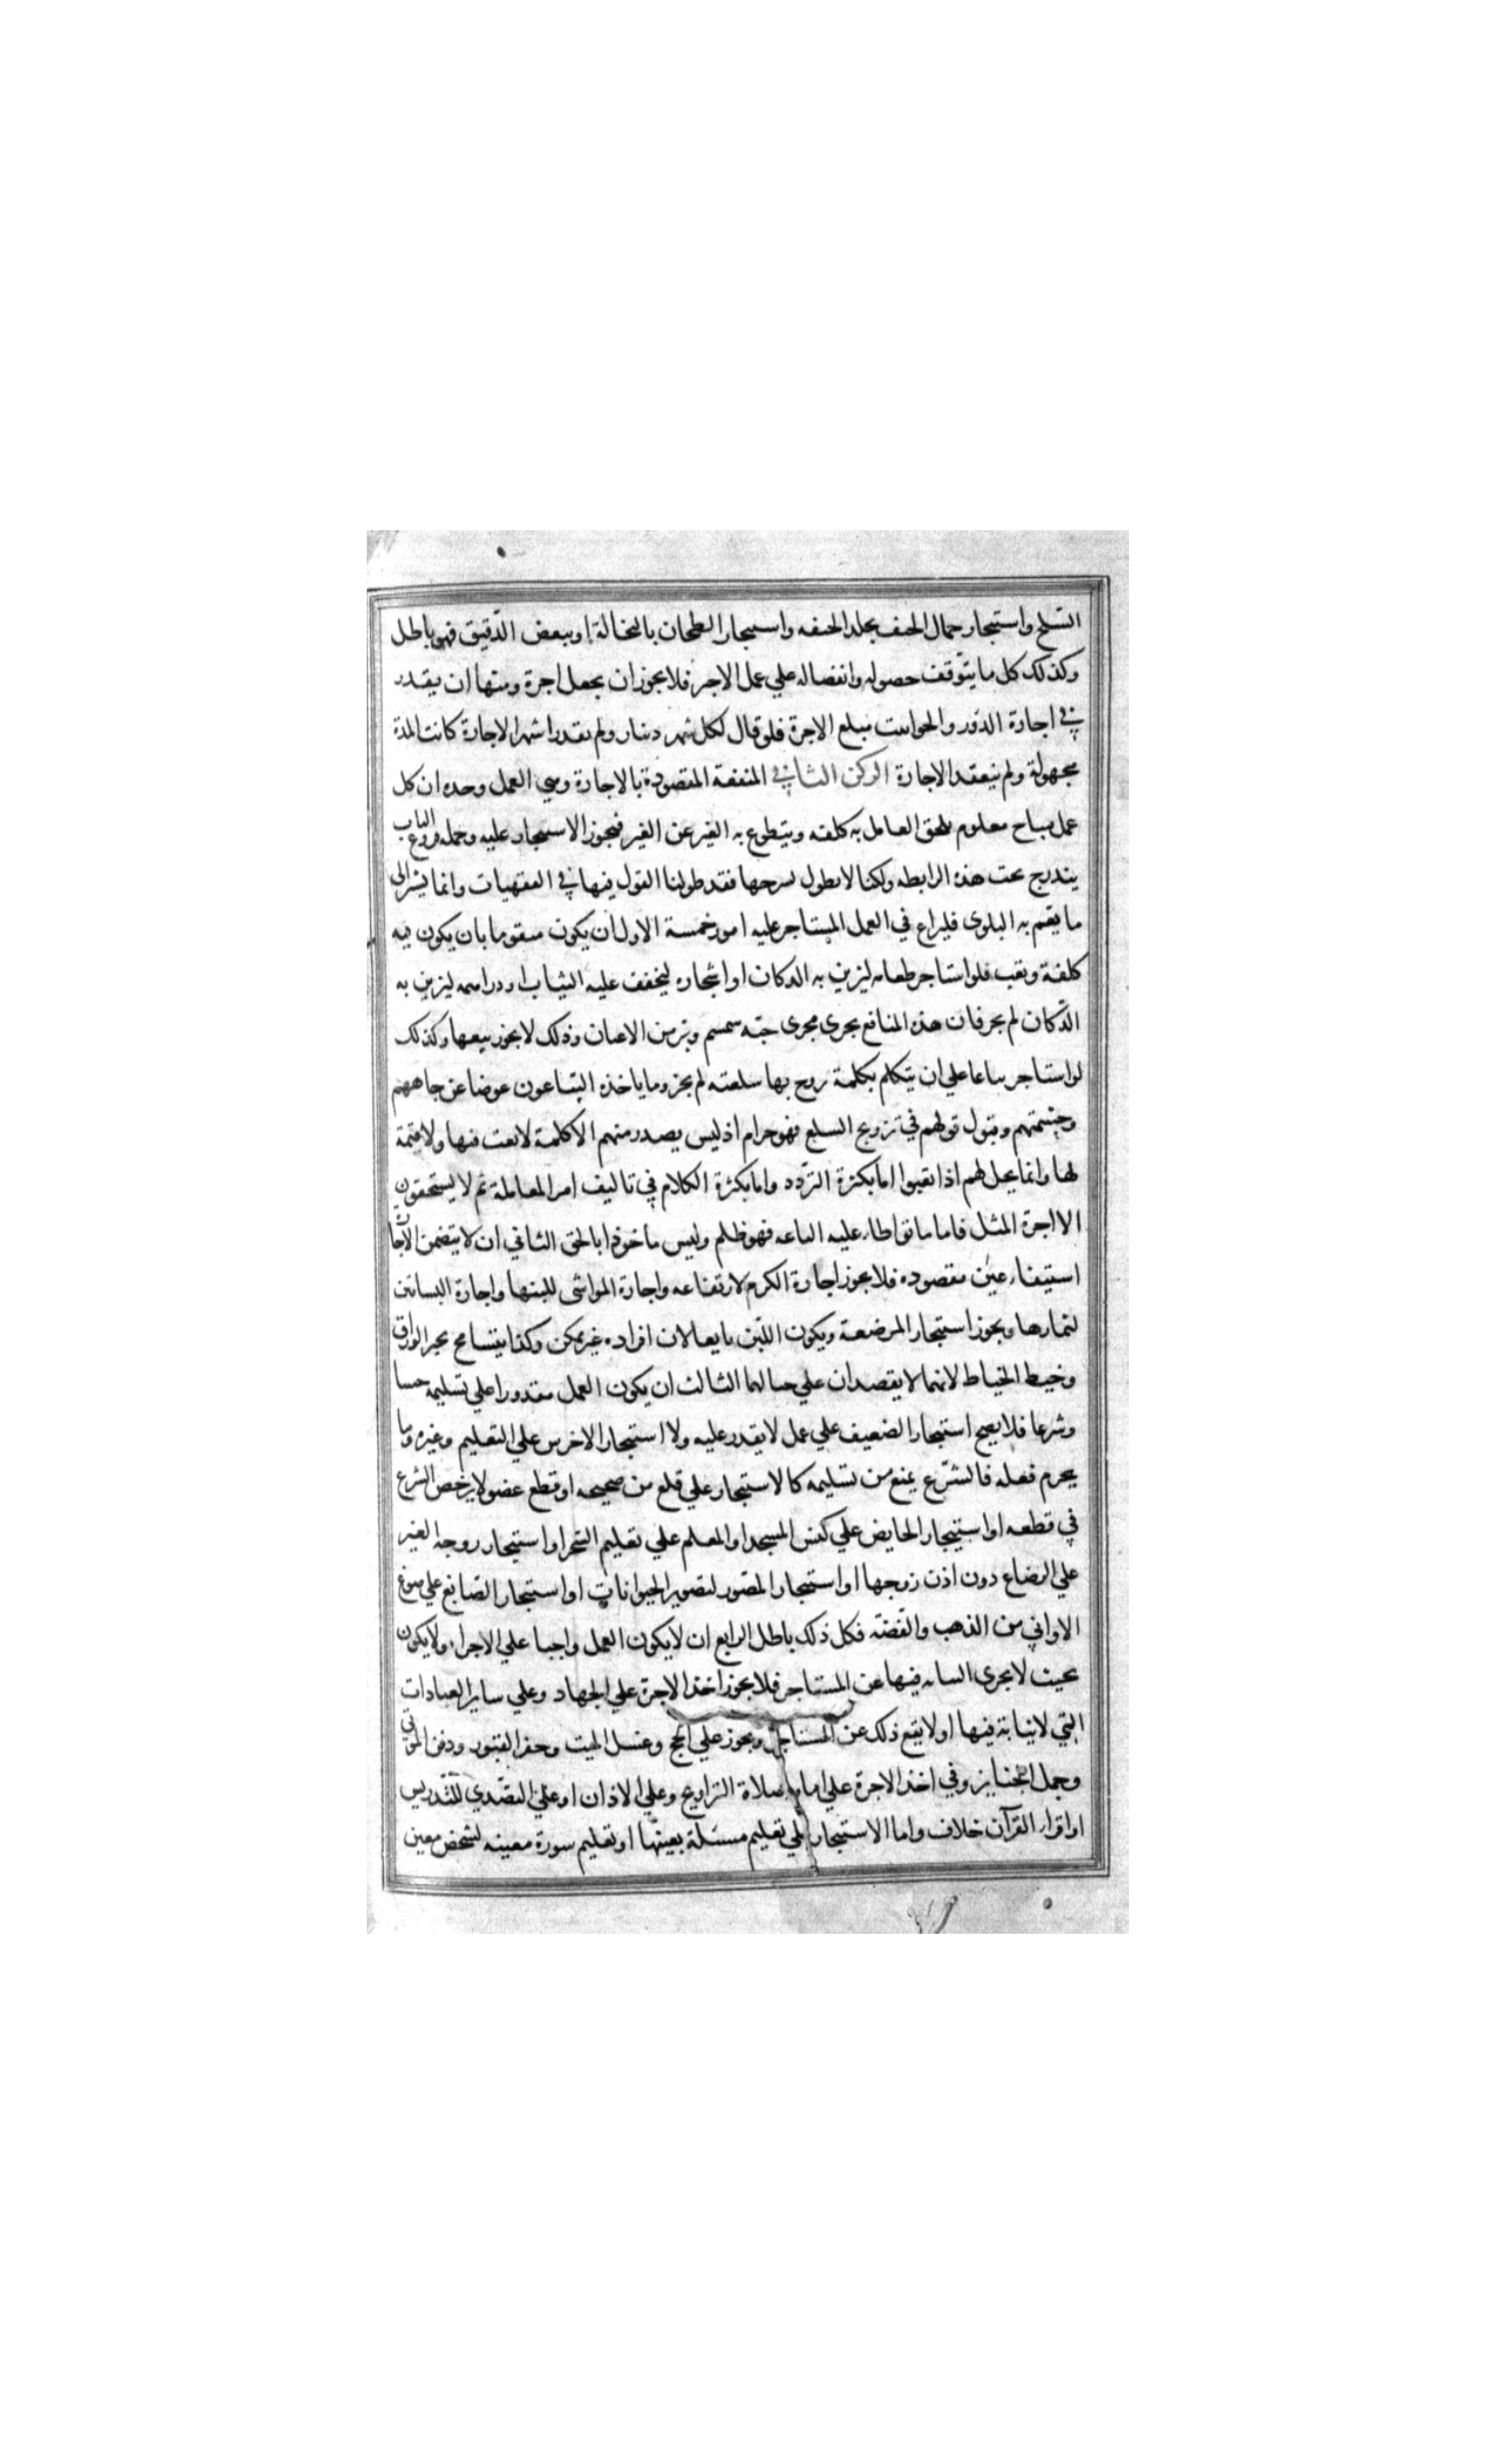 السلخ واستيجار حمال الجيف بجلد الجيفه واستيجار الطحان بالنخالة او ببعض الدّقيق فهو باطل
وكذلك كل ما يتوقف حصوله وانفصاله علي عمل الاجير فلا يجوز ان يجعل اجرة ومنها ان يقدر
في اجارة الدور والحوانيت مبلغ الاجرة فلو قال لكل شهر دينار ولم يقدر اشهر الاجارة كانت المدة
مجهولة ولم ينعقد الاجارة الركن الثاني المنفعة المقصودة بالاجارة وهي العمل وحده ان كل
عمل مباح معلوم يلحق العامل به كلفه ويتطوع به الغير عن الغير فيجوز الاستيجار عليه وجمله فروع الباب
يندرج تحت هذه الرابطه ولكنا لا نطول بشرحها فقد طولنا القول فيها في الفقهيات وانما نشير الى
ما يعم به البلوى فليراع في العمل المستاجر عليه امور خمسة الاول ان يكون متقوما بان يكون فيه
كلفة وتعب فلو استاجر طعاما ليزين به الدكان او اشجارا ليجفف عليه الثياب او دراهم ليزين به
الدّكان لم يجز فان هذه المنافع يجرى مجرى حبّه سمسم وبر من الاعيان وذلك لا يجوز بيعها وكذلك
لو استاجر بياعا علي ان يتكلم بكلمة يروج بها سلعته لم يجز وما ياخذه البيّاعون عوضا عن جاههم
وحشمتهم وقبول قولهم في ترويج السلع فهو حرام اذ ليس يصدر منهم الا كلمة لا تعب فيها ولا قيمة
لها وانما يحل لهم اذا تعبوا اما بكثرة التردّد واما بكثرة الكلام في تاليف امر المعاملة ثم لا يستحقون
الا اجرة المثل فاما ما تواطاء عليه الباعه فهو ظلم وليس ماخوذا بالحق الثاني ان لا يتضمن الاجارة
استيفاء عين مقصوده فلا يجوز اجارة الكرم لارتفاعه واجارة المواشى للبنها واجارة البساتين
لثمارها ويجوز استيجار المرضعة ويكون اللبن تابعا لان افراده غير ممكن وكذا يتسامح بحبر الوراق
وخيط الخياط لانهما لا يقصدان علي حيالهما الثالث ان يكون العمل مقدورا علي تسليمه حسا
وشرعا فلا يصح استيجار الضعيف علي عمل لا يقدر عليه ولا استيجار الاخرس علي التعليم وغيره وما
يحرم فعله فالشّرع يمنع من تسليمه كالاستيجار علي قلع سن صحيحه او قطع عضو لا يرخص الشرع
في قطعه او استيجار الحايض علي كنس المسجد او المعلم علي تعليم السّحر او استيجار زوجه الغير
علي الرضاع دون اذن زوجها او استيجار المصور لتصوير الحيوانات او استيجار الصّايغ علي صوغ
الاواني من الذهب والفضّه فكل ذلك باطل الرابع ان لا يكون العمل واجبا علي الاجراء ولا يكون
بحيث لا يجرى النيابه فيها عن المستاجر فلا يجوز اخذ الاجرة علي الجهاد وعلي ساير العبادات
التي لا نيابة فيها او لا يقع ذلك عن المستاجر ويجوز علي الحج وغسل الميت وحفر القبور ودفن الموتي
وحمل الجنايز وفي اخذ الاجرة علي امامة صلاة التراويح وعلي الاذان او علي التصّدي للتّدريس
او اقراء القرآن خلاف واما الاستيجار علي تعليم مسئلة بعينها او تعليم سورة معينه لشخص معين